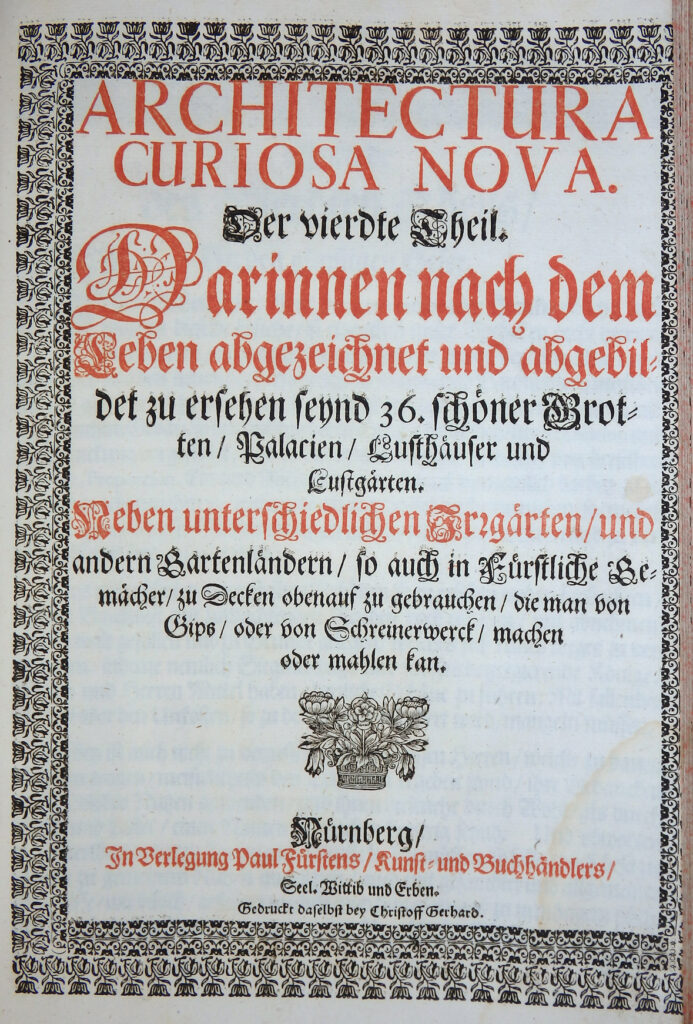 ARCHITECTURA
CURIOSA NOVA.
Der vierdte Theil.
Darinnen nach dem
Leben abgezeichnet und abgebil-
det zu ersehen seynd 36. schöner Grot-
ten / Palacien / Lusthäuser und
Lustgärten.
Neben unterschiedlichen Irrgärten / und
andern Gartenländern / so auch in Fürstliche Ge-
mächer / zu Decken obenauf zu gebrauchen / die man von
Gips / oder von Schreinerwerck / machen
oder mahlen kan.
Nürnberg /
In Verlegung Paul Fürstens / Kunst- und Buchhändlers /
Seel. Wittib und Erben.
Gedruckt daselbst bey Christoff Gerhard.